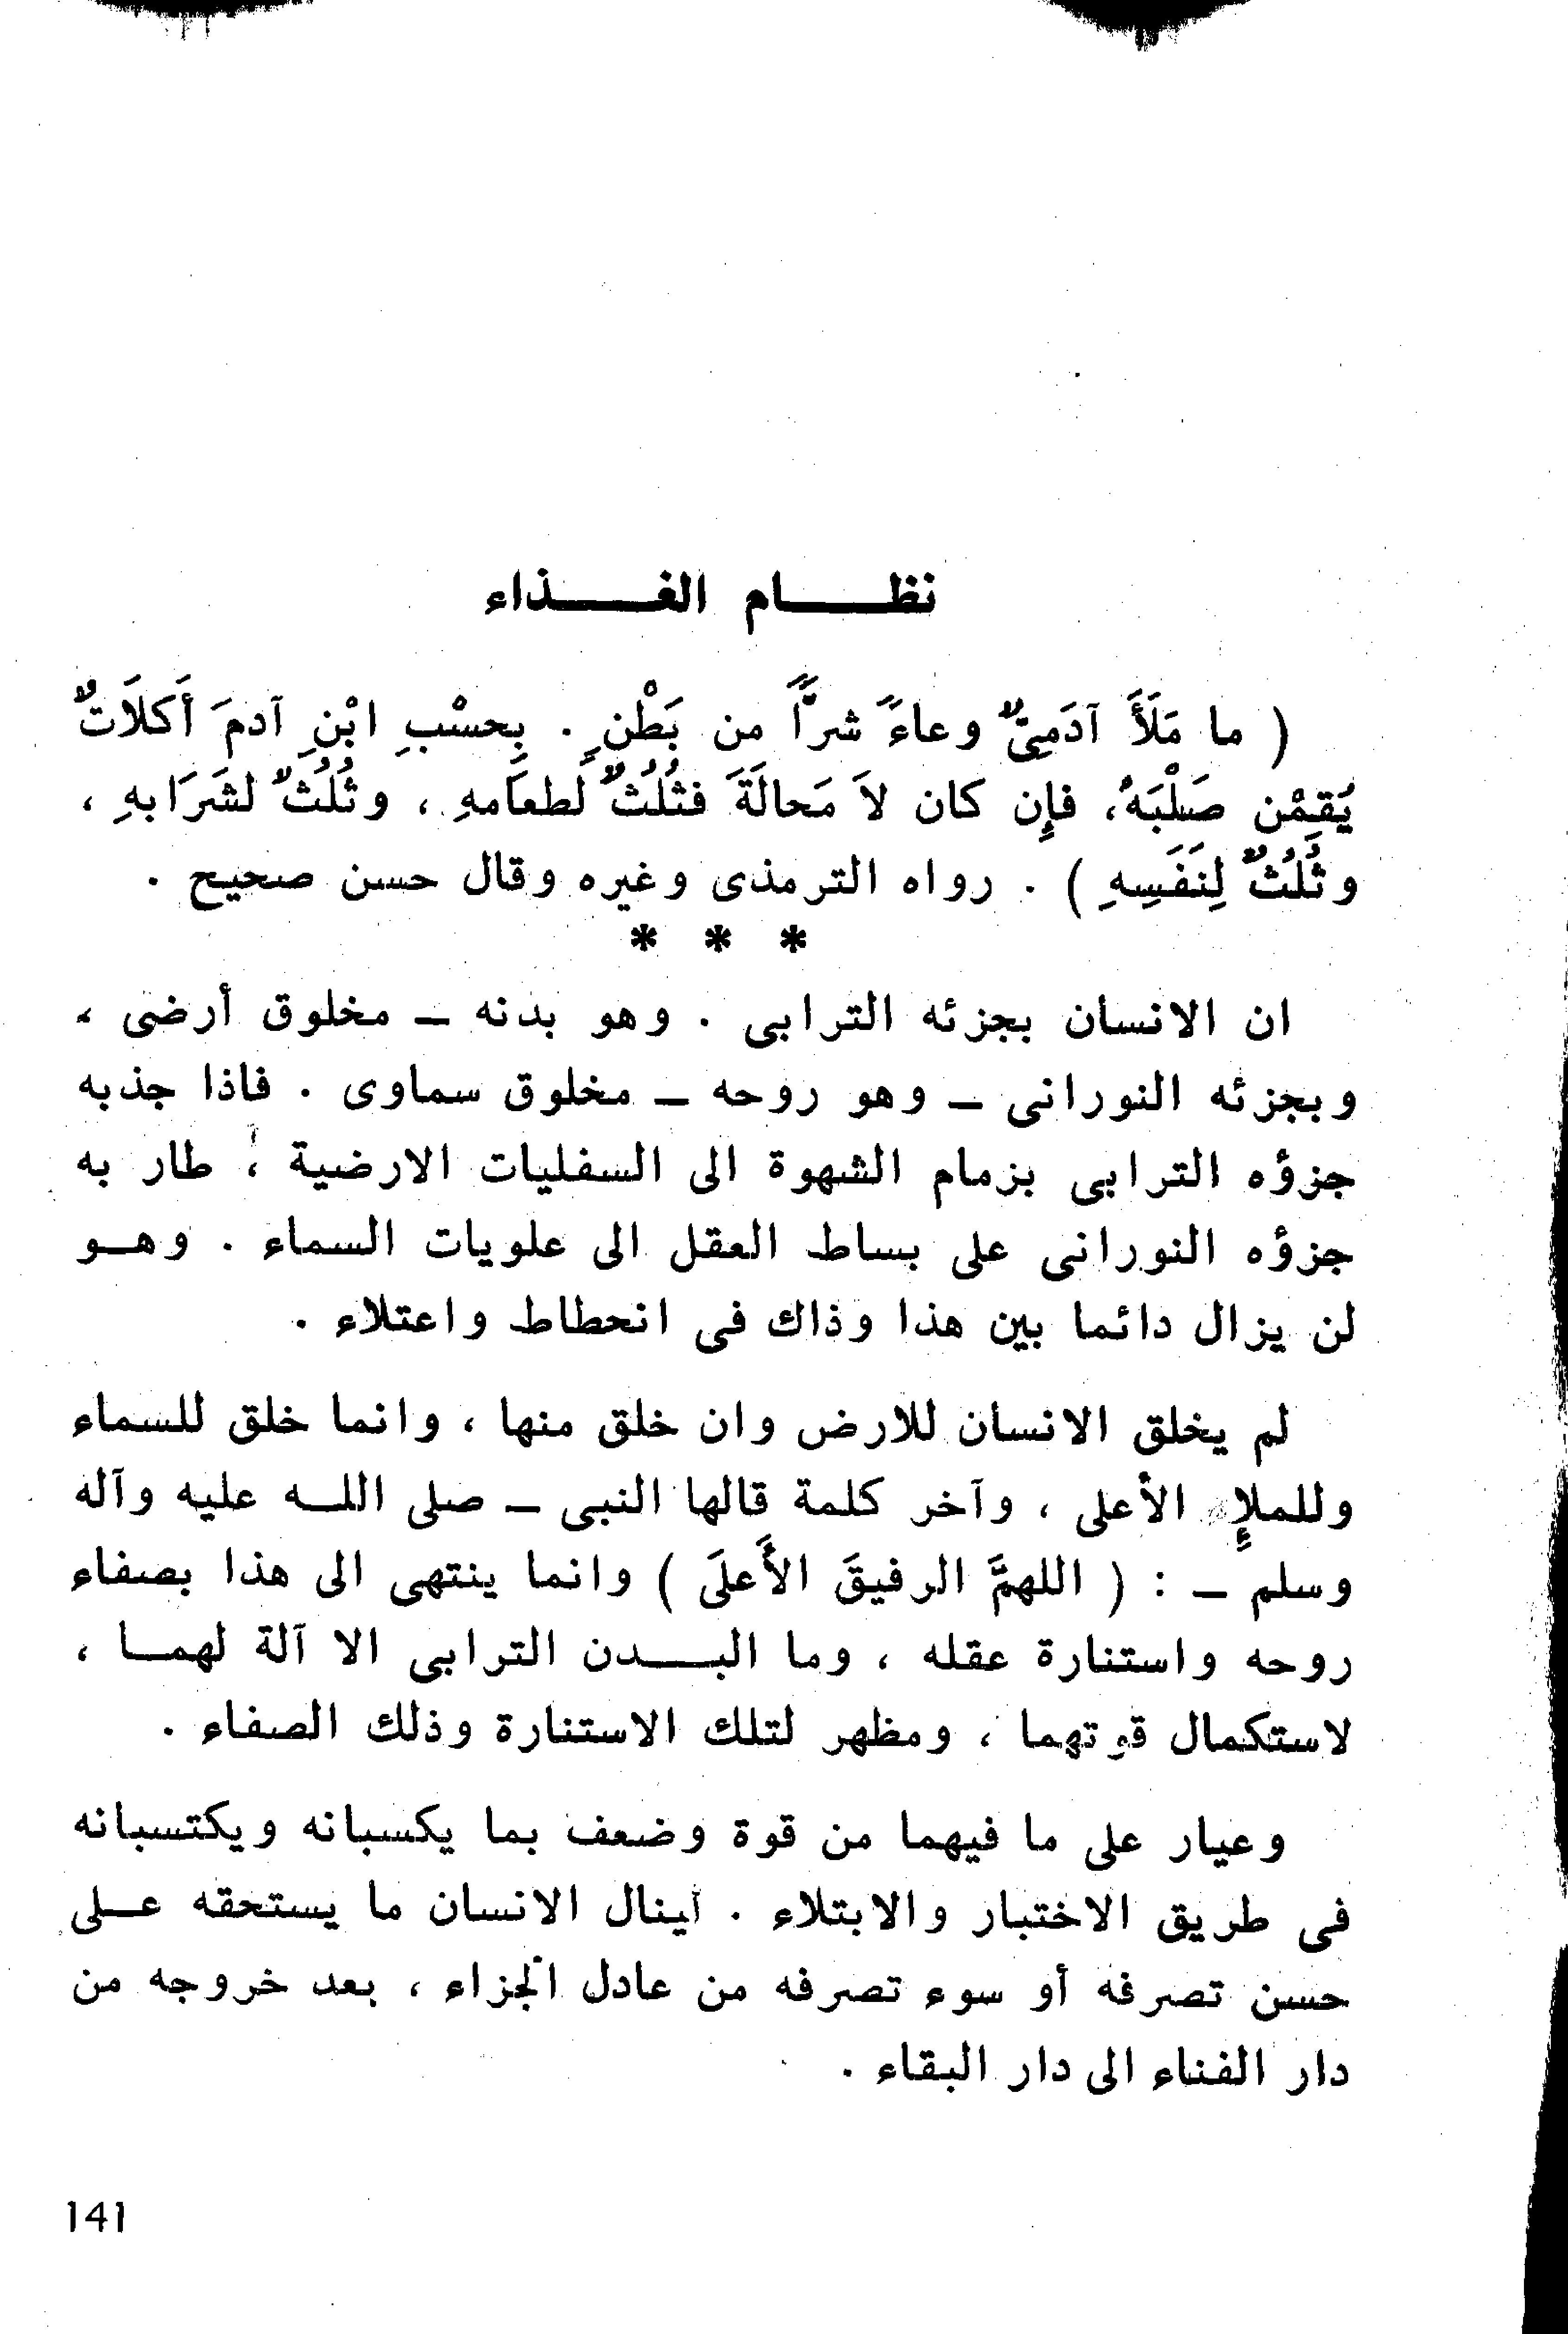 نظــــام الغــــذاء
( ما مَلَأَ آدَمِىٌّ وعاءً شرًّا من بَطْنٍ . بِحسْبِ ابْنِ آدمَ أَكلاَتٌ
يُقِمْن صَلْبَهُ، فإِن كان لاَ مَحالَةَ فثُلُثٌ لطعَامهِ ، وثُلُثٌ لشَرَابهِ ،
وثُلُثٌ لِنَفَسِهِ ) . رواه الترمذى وغيره وقال حسن صحيح .
* * *
ان الانسان بجزئه الترابى . وهو بدنه – مخلوق أرضى ،
وبجزئه النورانى – وهو روحه – مخلوق سماوى . فاذا جذبه
جزؤه الترابى بزمام الشهوة الى السفليات الارضية ، طار به
جزؤه النورانى على بساط العقل الى علويات السماء . وهــو
لن يزال دائما بين هذا وذاك فى انحطاط واعتلاء .
لم يخلق الانسان للارض وان خلق منها ، وانما خلق للسماء
وللملإِ الأعلى ، وآخر كلمة قالها النبى – صلى اللــه عليه وآله
وسلم – : ( اللهمَّ الرفيقَ الأَعلَى ) وانما ينتهى الى هذا بصفاء
روحه واستنارة عقله ، وما البــــدن الترابى الا آلة لهمــا ،
لاستكمال قوتهما ، ومظهر لتلك الاستنارة وذلك الصفاء .
وعيار على ما فيهما من قوة وضعف بما يكسبانه ويكتسبانه
فى طريق الاختبار والابتلاء . أينال الانسان ما يستحقه عــلى
حسن تصرفه أو سوء تصرفه من عادل الجزاء ، بعد خروجه من
دار الفناء الى دار البقاء .
141